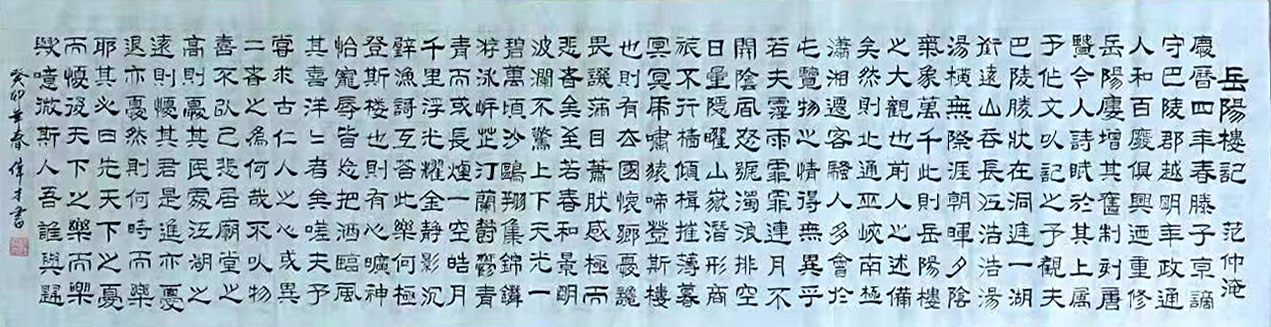 岳陽樓記 范仲淹
慶曆四年春滕子京謫
守巴陵郡越明年政通
人和百廢俱興迺重修
岳陽廔增其舊制刻唐
賢今人詩賦於其上属
予作文以記之予觀夫
巴陵勝狀在洞庭一湖
銜遠山吞長江浩浩湯
湯橫無際涯朝暉夕陰
氣象萬千此則岳陽樓
之大觀也前人之述備
矣然則北通巫峽南極
瀟湘遷客騷人多會於
此覽物之情得無異乎
若夫霪雨霏霏連月不
開陰風怒號濁浪排空
日星隱曜山嶽潛形商
旅不行檣傾楫摧薄暮
冥冥虎嘯猿啼登斯樓
也則有去國懷鄉憂讒
畏譏滿目蕭狀感極而
悲者矣至若春和景明
波瀾不驚上下天光一
碧萬頃沙鷗翔集錦鱗
游泳岸芷汀蘭鬱鬱青
青而或長煙一空皓月
千里浮光耀金静影沉
璧漁謌互答此樂何極
登斯楼也則有心曠神
怡寵辱皆忘把酒臨風
其喜洋洋者矣嗟夫予
嘗求古仁人之心或異
二者之為何哉不以物
喜不以己悲居廟堂之
高則憂其民處江湖之
遠則憂其君是進亦憂
退亦憂然則何時而樂
耶其必曰先天下之憂
而憂後天下之樂而樂
歟噫微斯人吾誰與歸
癸卯年春偉才書